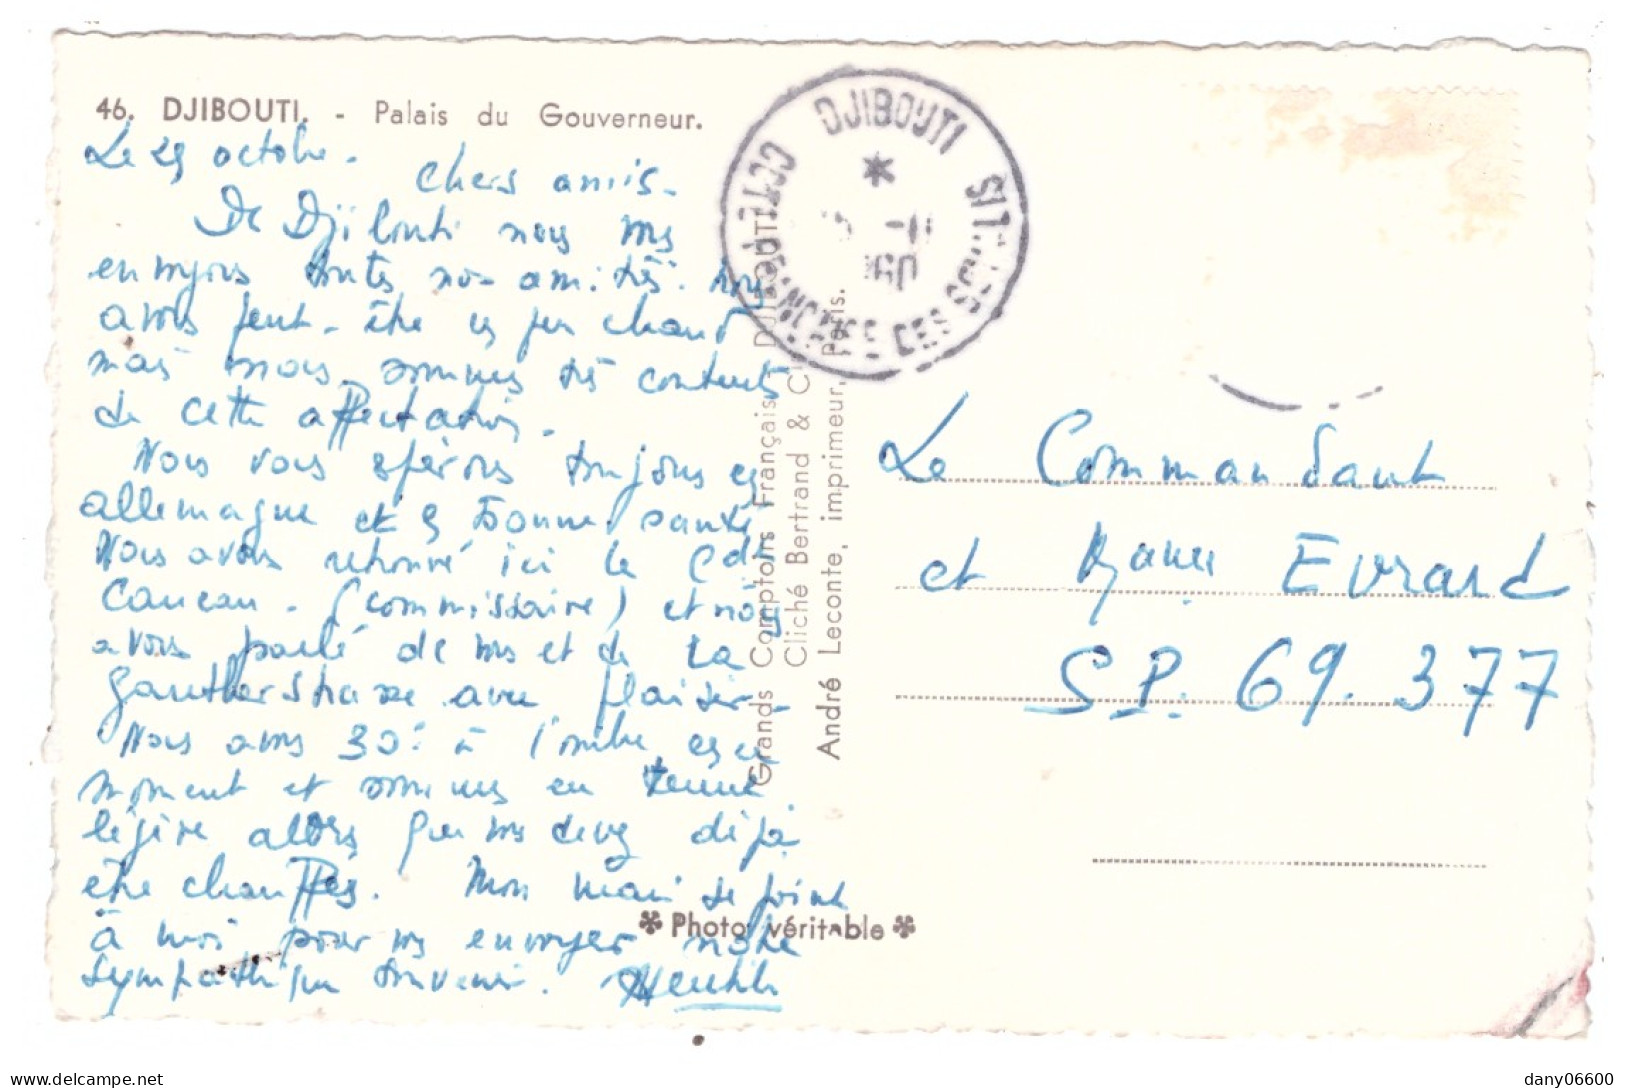 46. DJIBOUTI. - Palais du Gouverneur.
Le 29 octobre.
Chers amis.
De Djibouti nous vs
envoyons toutes nos amitiés. Nous
avons peut-être un peu chaud
mais nous sommes très contents
de cette affectation.
Nous vous espérons toujours en
allemagne et en bonne santé
Nous avons retrouvé ici le Cdt
Caneau. (commissaire) et nous
avons parlé de vs et de la
Gautherstrasse avec plaisir.
Nous avons 30° à l'ombre en ce
moment et sommes en tenue
légère alors que vs devez déjà
être chauffés. Mon mari se joint
à moi pour vs envoyer notre
sympathique souvenir.
DJIBOUTI
COTE
DEPENDANCES DES SOMALIS
60
Grands Comptoirs Français. Djibouti
Cliché Bertrand &
André Leconte, imprimeur, Paris.
Le Commandant
et Mame Evrard
S.P. 69.377
* Photo véritable *
delcampe.net
dany06600